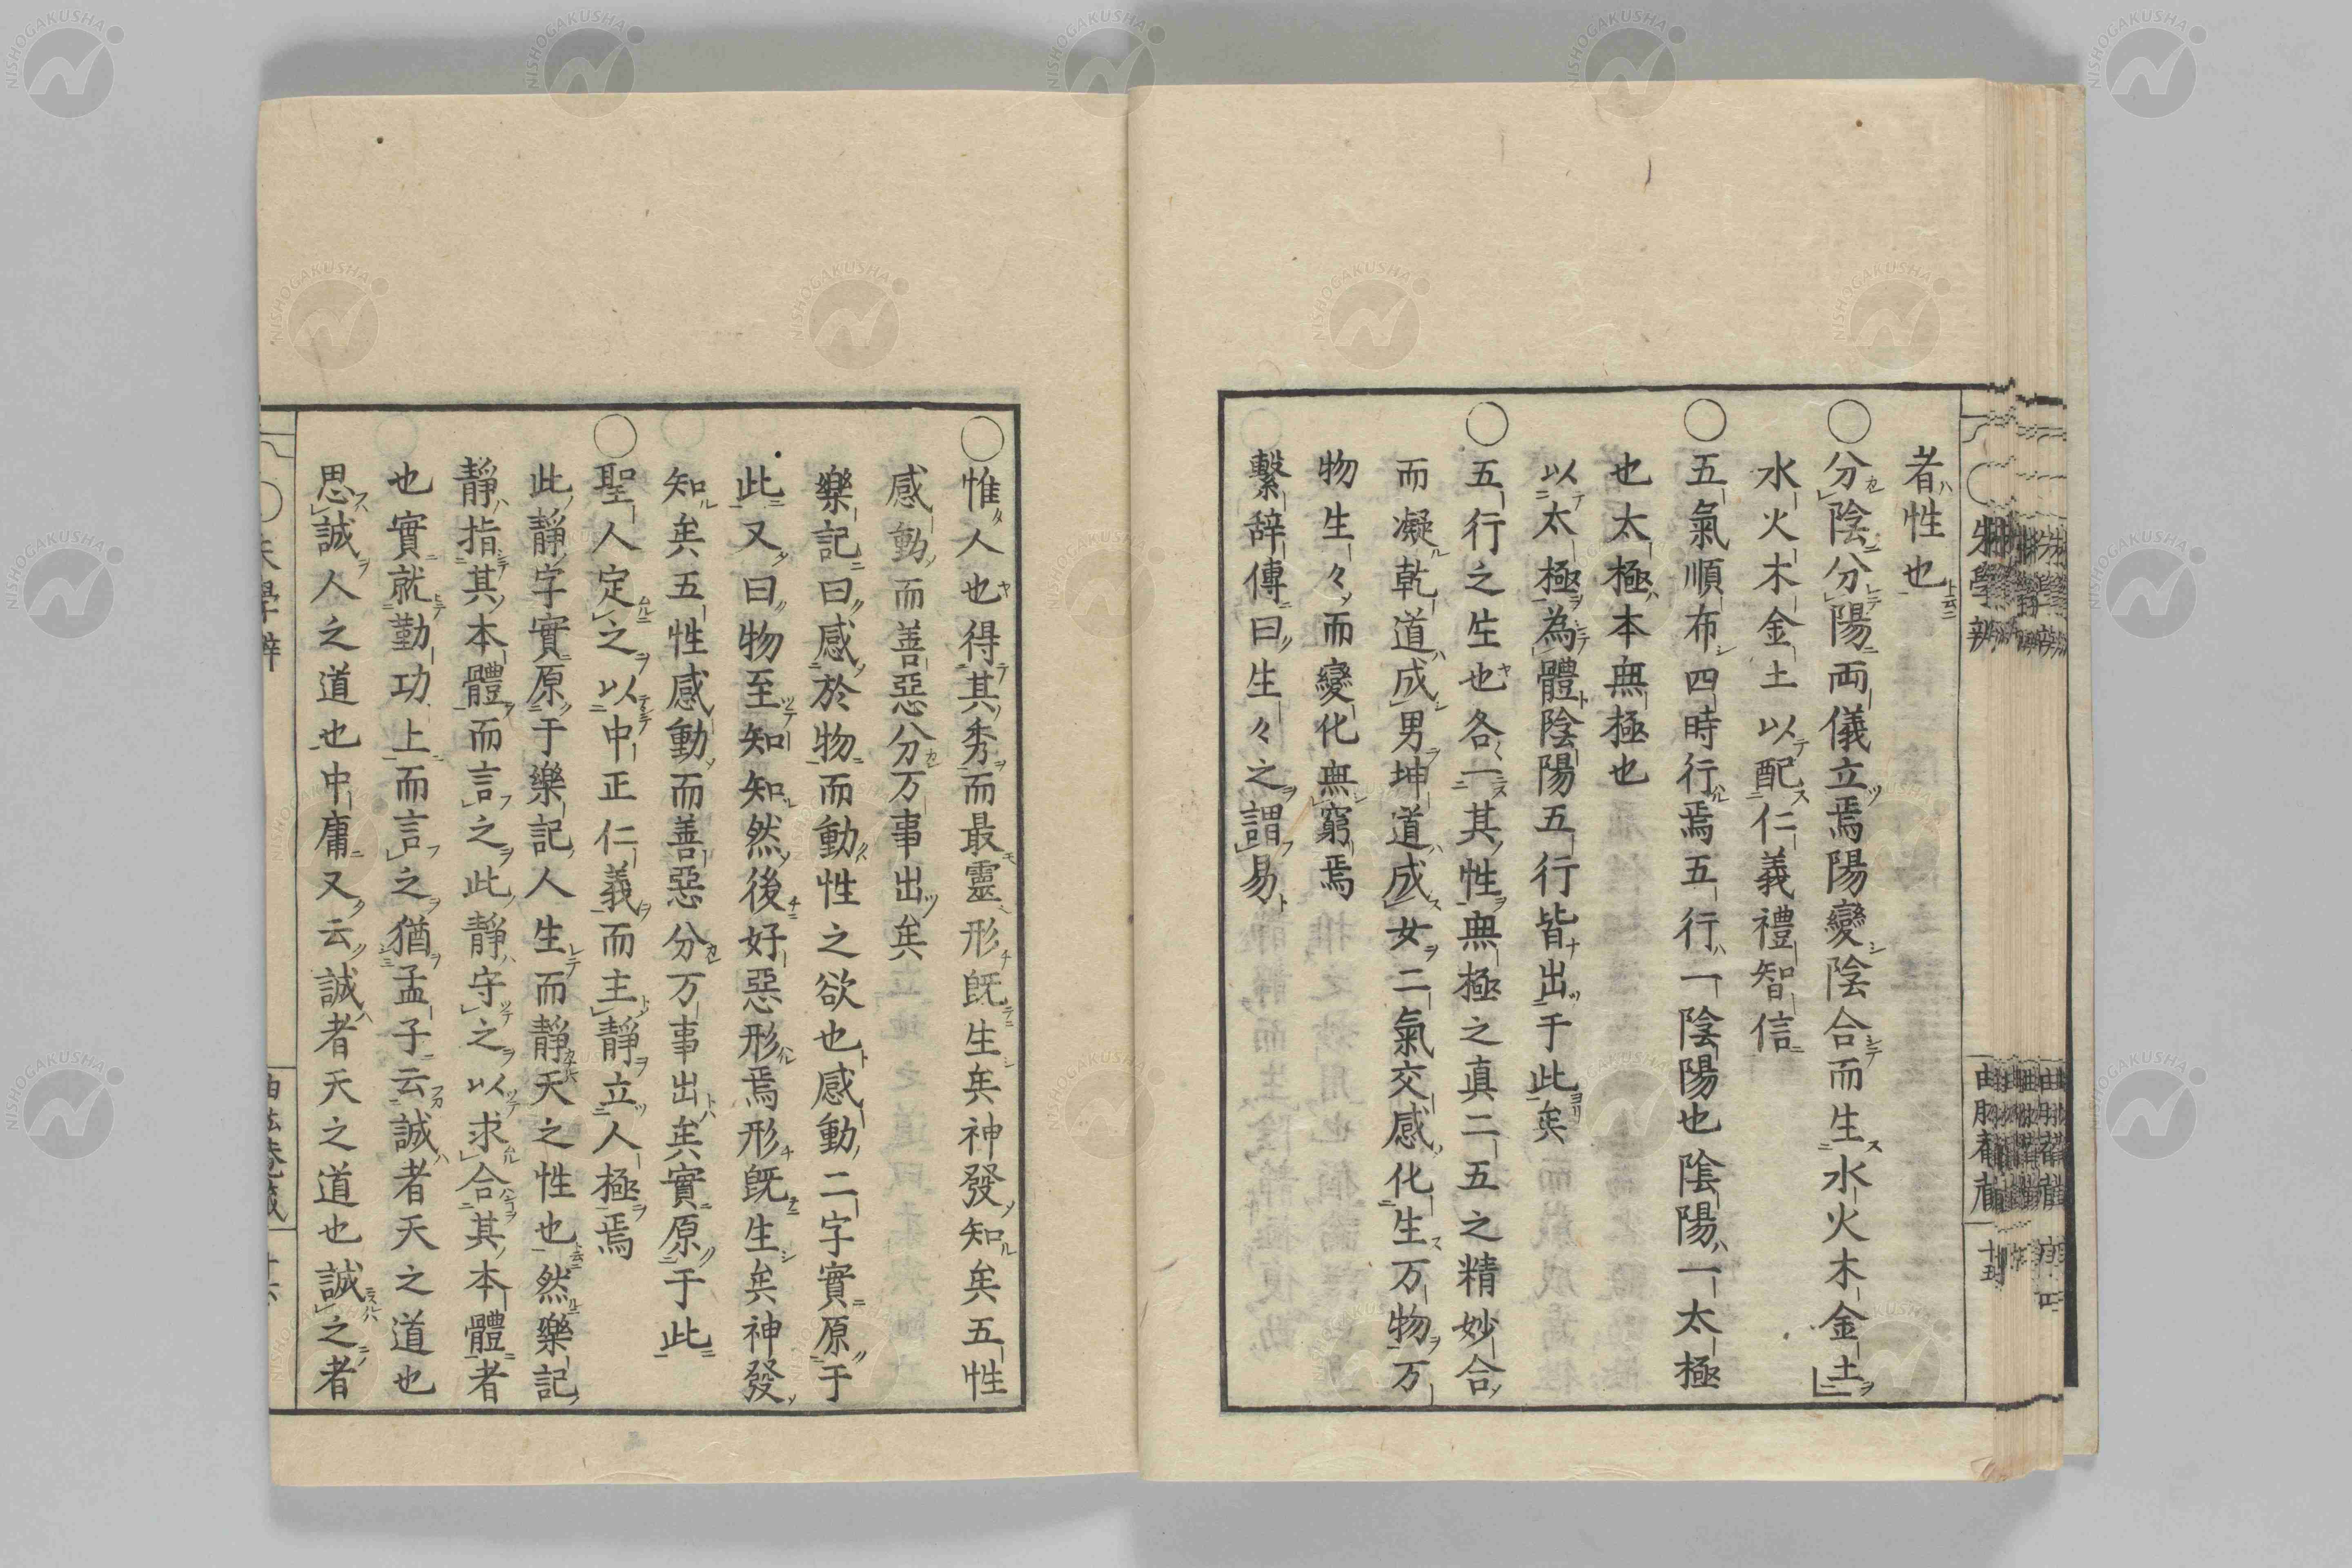 者性也
○分陰分陽両儀立焉陽變陰合而生水火木金土
水火木金土以配仁義禮智信
○五氣順布四時行焉五行一陰陽也陰陽一太極
也太極本無極也
以太極為體陰陽五行皆出于此矣
○五行之生也各一其性無極之真二五之精妙合
而凝乾道成男坤道成女二氣交感化生万物万
物生々而變化無窮焉
繫辞傳曰生々之謂易
○惟人也得其秀而最靈形既生矣神發知矣五性
感動而善惡分万事出矣
樂記曰感於物而動性之欲也感動二字實原于
此又曰物至知知然後好惡形焉形既生矣神發
知矣五性感動而善惡分万事出矣實原于此
○聖人定之以中正仁義而主静立人極焉
此静字實原于樂記人生而静天之性也然樂記
静指其本體而言之此静守之以求合其本體者
也實就勤功上而言之猶孟子云誠者天之道也
思誠人之道也中庸又云誠者天之道也誠之者
朱學辨
由𦙾菴蔵
十五
NISHOGAKUSHA